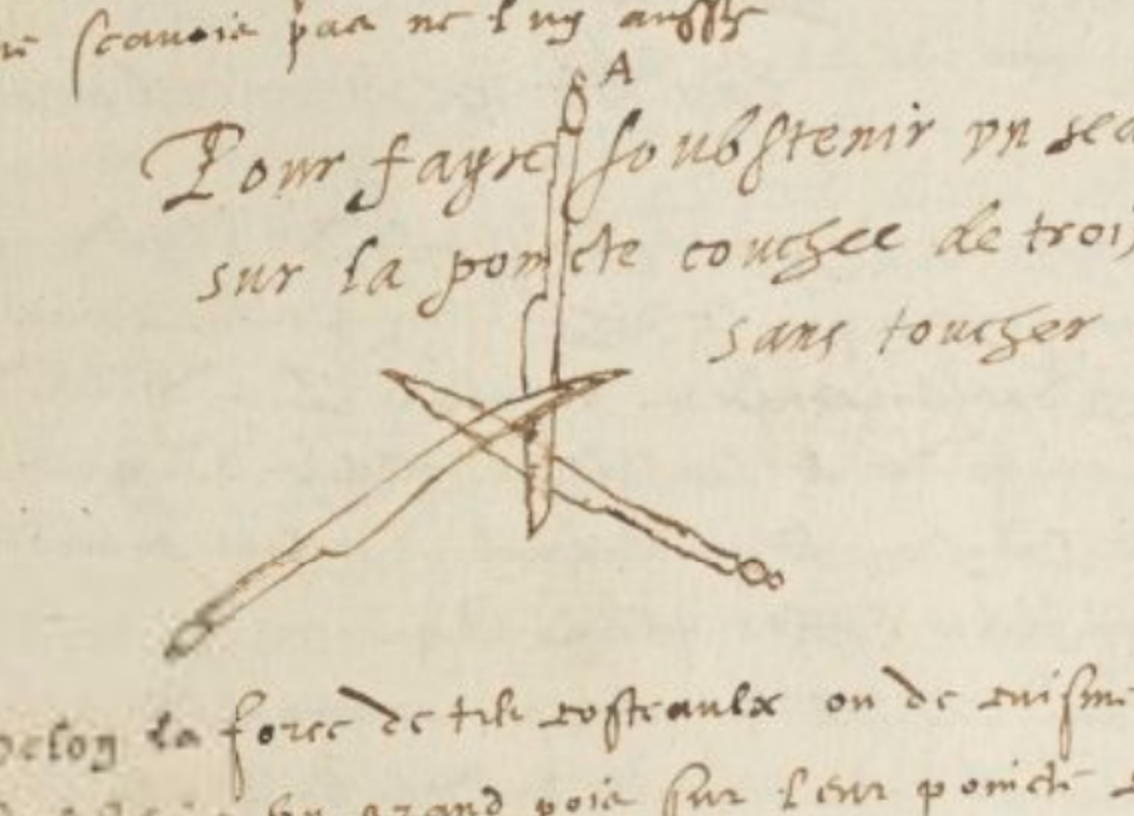 scavoie pas ne luy aussy
A
Pour fayre soubstenir un
sur la poincte couchee de trois
sans toucher
selon la force de tels costeaulx ou de cuisine
un grand pois sur leur poincte